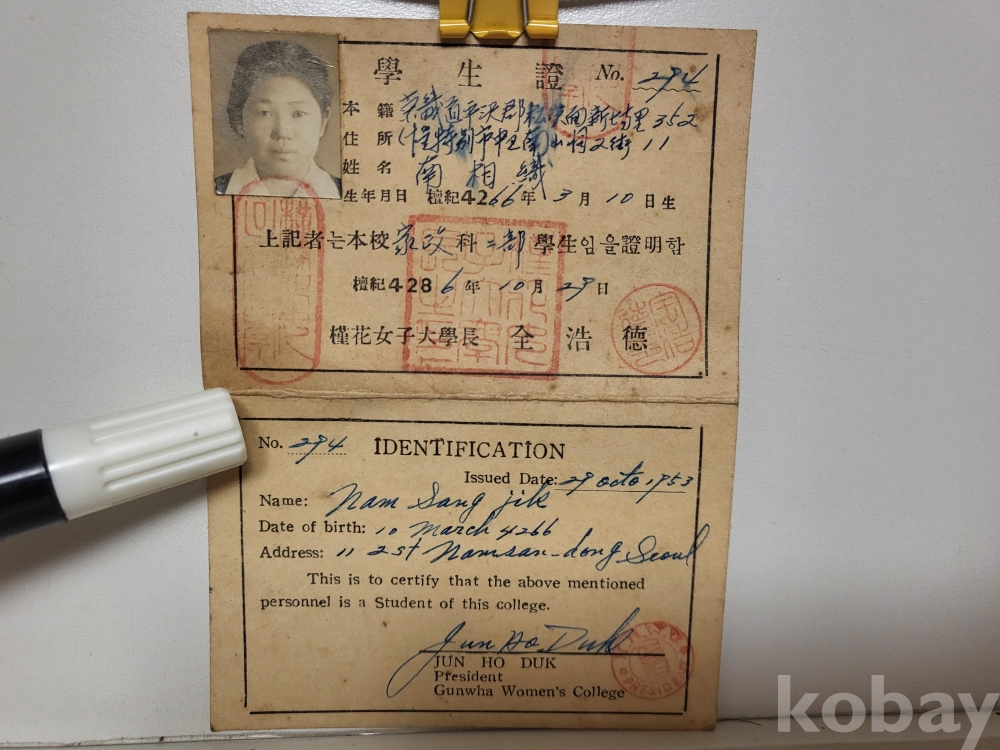 學 生 證 No. 294
本 籍 京畿道平沢郡松炭面新場里 352
住 所 特別市中区南山洞 2街 11
姓 名 南 相 織
生年月日 檀紀4266年 3月 10日生
上記者는本校家政科 二部 學生임을證明함
檀紀4286年 10月 29日
槿花女子大學長 全 浩 德
No. 294 IDENTIFICATION
Issued Date: 29 octo 1953
Name: Nam Sang jik
Date of birth: 10 March 4266
Address: 11 2st Namsan-dong Seoul
This is to certify that the above mentioned
personnel is a Student of this college.
Jun Ho Duk
JUN HO DUK
President
Gunwha Women's College
kobay